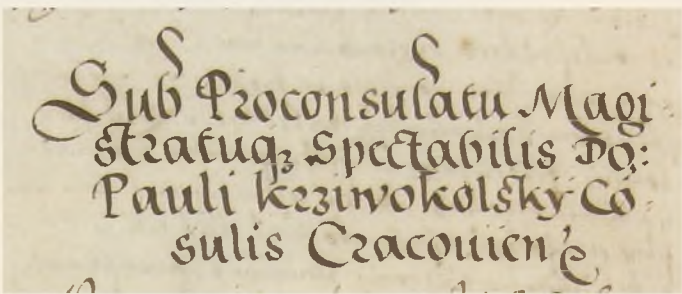 Sub Proconsulatu Magi
stratuqꝫ Spectabilis Do:
Pauli krziwokolsky Cō
sulis Cracouien̄